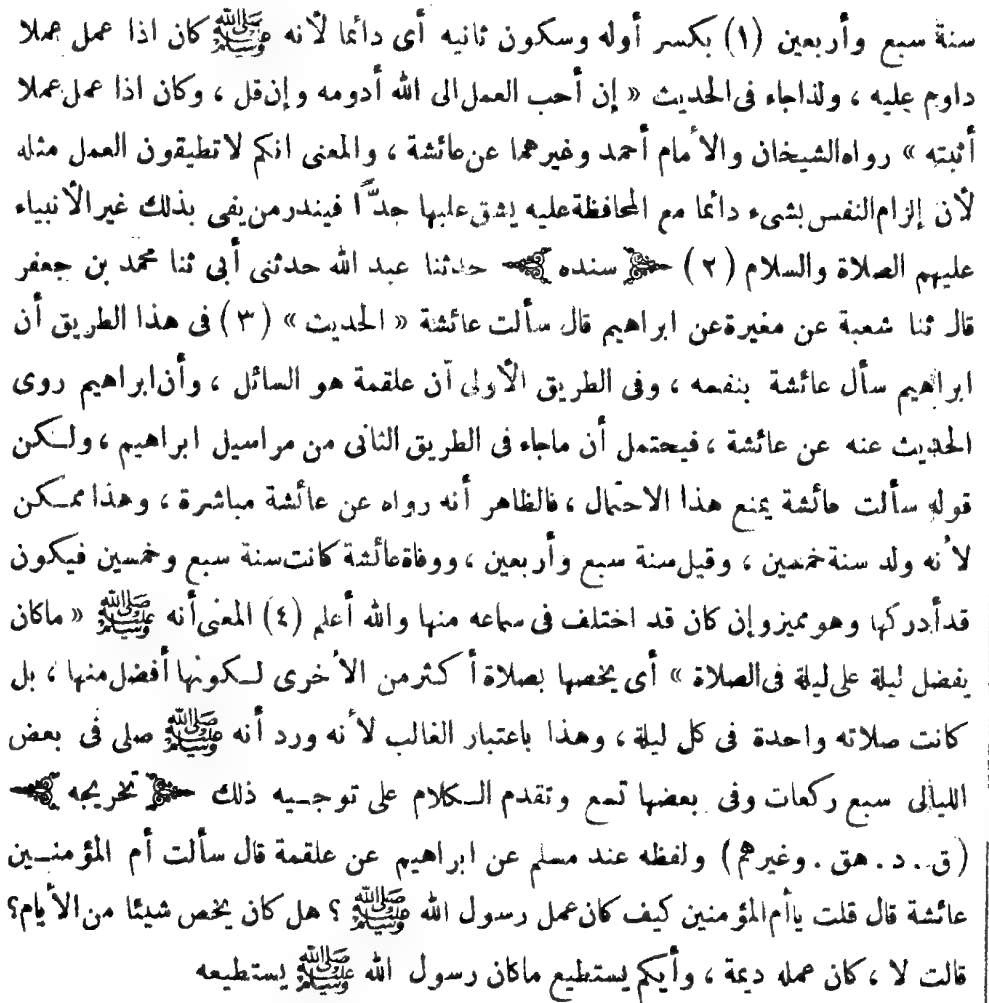 سنة سبع وأربعين (١) بكسر أوله وسكون ثانيه أى دائما لأنه ﷺ كان اذا عمل عملا
داوم عليه ، ولذا جاء فى الحديث « إن أحب العمل الى الله أدومه وإن قل ، وكان اذا عمل عملا
أثبته » رواه الشيخان والأمام أحمد وغيرهما عن عائشة ، والمعنى انكم لا تطيقون العمل مثله
لأن إلزام النفس بشىء دائما مع المحافظة عليه يشق عليها جدًّا فيندر من يفى بذلك غير الأنبياء
عليهم الصلاة والسلام (٢) سنده حدثنا عبد الله حدثنى أبى ثنا محمد بن جعفر
قال ثنا شعبة عن مغيرة عن ابراهيم قال سألت عائشة « الحديث » (٣) فى هذا الطريق أن
ابراهيم سأل عائشة بنفسه ، وفى الطريق الأولى أن علقمة هو السائل ، وأن ابراهيم روى
الحديث عنه عن عائشة ، فيحتمل أن ما جاء فى الطريق الثانى من مراسيل ابراهيم ، ولـكن
قوله سألت عائشة يمنع هذا الاحتمال ، فالظاهر أنه رواه عن عائشة مباشرة ، وهذا ممـكن
لأنه ولد سنة خمسين ، وقيل سنة سبع وأربعين ، ووفاة عائشة كانت سنة سبع وخمسين فيكون
قد أدركها وهو مميز وإن كان قد اختلف فى سماعه منها والله أعلم (٤) المعنى أنه ﷺ « ما كان
يفضل ليلة على ليلة فى الصلاة » أى يخصها بصلاة أكثر من الأخرى لـكونها أفضل منها ، بل
كانت صلاته واحدة فى كل ليلة ، وهذا باعتبار الغالب لأنه ورد أنه ﷺ صلى فى بعض
الليالى سبع ركعات وفى بعضها تسع وتقدم الـكلام على توجـيه ذلك تخريجه
(ق . د . هق . وغيرهم) ولفظه عند مسلم عن ابراهيم عن علقمة قال سألت أم المؤمنـين
عائشة قال قلت يا أم المؤمنين كيف كان عمل رسول الله ﷺ ؟ هل كان يخص شيئا من الأيام؟
قالت لا ، كان عمله ديمة ، وأيكم يستطيع ما كان رسول الله ﷺ يستطيعه